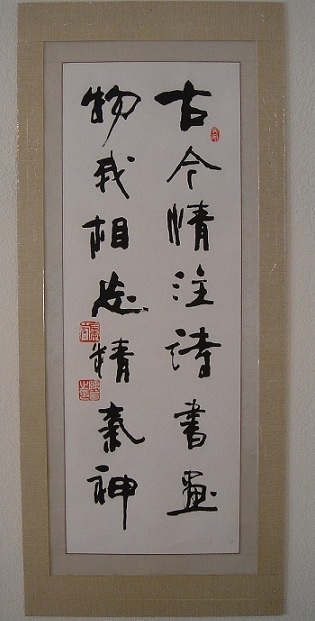 古今情注詩書画
物我相忘精氣神